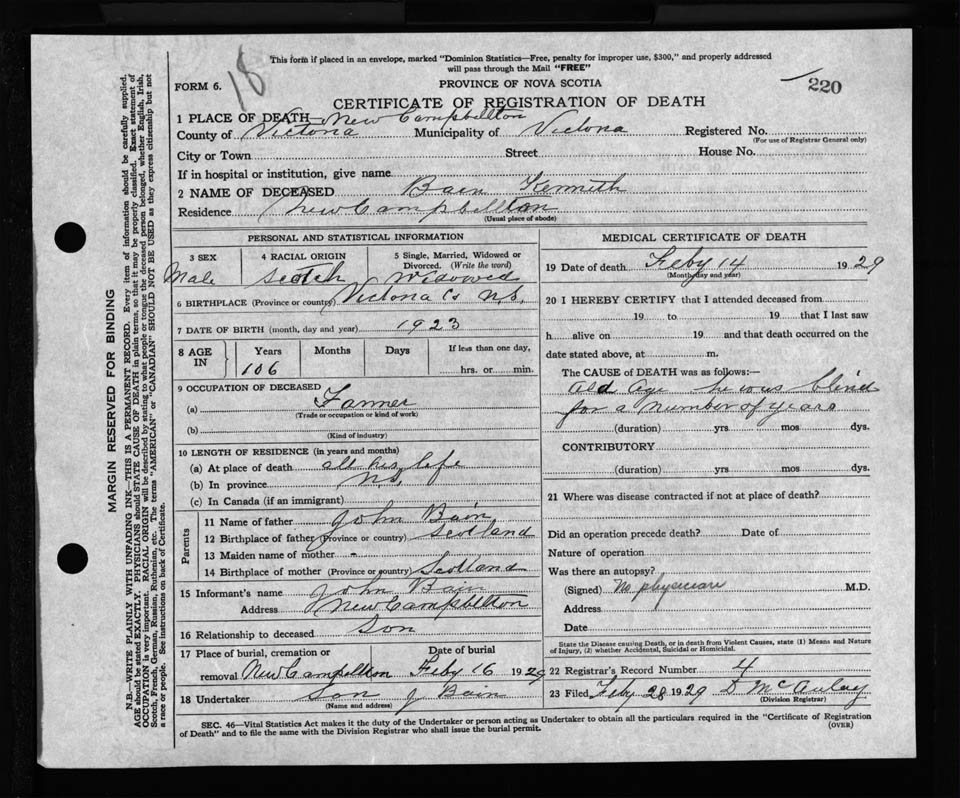 18
This form if placed in an envelope, marked "Dominion Statistics—Free, penalty for improper use, $300," and properly addressed
will pass through the Mail "FREE"
220
FORM 6.
PROVINCE OF NOVA SCOTIA
CERTIFICATE OF REGISTRATION OF DEATH
1 PLACE OF DEATH New Campbellton
County of Victoria Municipality of Victoria Registered No.
(For use of Registrar General only)
City or Town Street House No.
If in hospital or institution, give name
2 NAME OF DECEASED Bain Kenneth
Residence New Campbellton
(Usual place of abode)
PERSONAL AND STATISTICAL INFORMATION
3 SEX 4 RACIAL ORIGIN 5 Single, Married, Widowed or
Divorced. (Write the word)
Male Scotch Widowed
6 BIRTHPLACE (Province or country) Victoria Co N.S.
7 DATE OF BIRTH (month, day and year) 1923
8 AGE IN Years Months Days If less than one day,
106 hrs. or min.
9 OCCUPATION OF DECEASED
(a) Farmer
(Trade or occupation or kind of work)
(b)
(Kind of industry)
10 LENGTH OF RESIDENCE (in years and months)
(a) At place of death all his life
(b) In province N.S.
(c) In Canada (if an immigrant)
Parents
11 Name of father John Bain
12 Birthplace of father (Province or country) Scotland
13 Maiden name of mother -
14 Birthplace of mother (Province or country) Scotland
15 Informant's name John Bain
Address New Campbellton
16 Relationship to deceased Son
17 Place of burial, cremation or Date of burial
removal New Campbellton Feby 16 1929
18 Undertaker Son J Bain
(Name and address)
MEDICAL CERTIFICATE OF DEATH
19 Date of death Feby 14 1929
(Month, day and year)
20 I HEREBY CERTIFY that I attended deceased from
19 to 19 that I last saw
h alive on 19 and that death occurred on the
date stated above, at m.
The CAUSE of DEATH was as follows:—
Old Age he was blind
for a number of years
(duration) yrs mos dys.
CONTRIBUTORY
(duration) yrs mos dys.
21 Where was disease contracted if not at place of death?
Did an operation precede death? Date of
Nature of operation
Was there an autopsy?
(Signed) No physician M.D.
Address
Date
State the Disease causing Death, or in death from Violent Causes, state (1) Means and Nature
of Injury, (2) whether Accidental, Suicidal or Homicidal.
22 Registrar's Record Number 4
23 Filed Feby 28 1929 D McAulay
(Division Registrar)
SEC. 46—Vital Statistics Act makes it the duty of the Undertaker or person acting as Undertaker to obtain all the particulars required in the "Certificate of Registration
of Death" and to file the same with the Division Registrar who shall issue the burial permit.
(OVER)
MARGIN RESERVED FOR BINDING
N.B.—WRITE PLAINLY WITH UNFADING INK—THIS IS A PERMANENT RECORD. Every item of information should be carefully supplied.
AGE should be stated EXACTLY. PHYSICIANS should STATE CAUSE OF DEATH in plain terms, so that it may be properly classified. Exact statement of
OCCUPATION is very important. RACIAL ORIGIN will be described by stating to what people or tongue the deceased person belonged, whether English, Irish,
Scotch, French, German, Russian, Ruthenian, etc. The terms "AMERICAN" or "CANADIAN" SHOULD NOT BE USED as they express citizenship but not
a race or people. See instructions on back of Certificate.